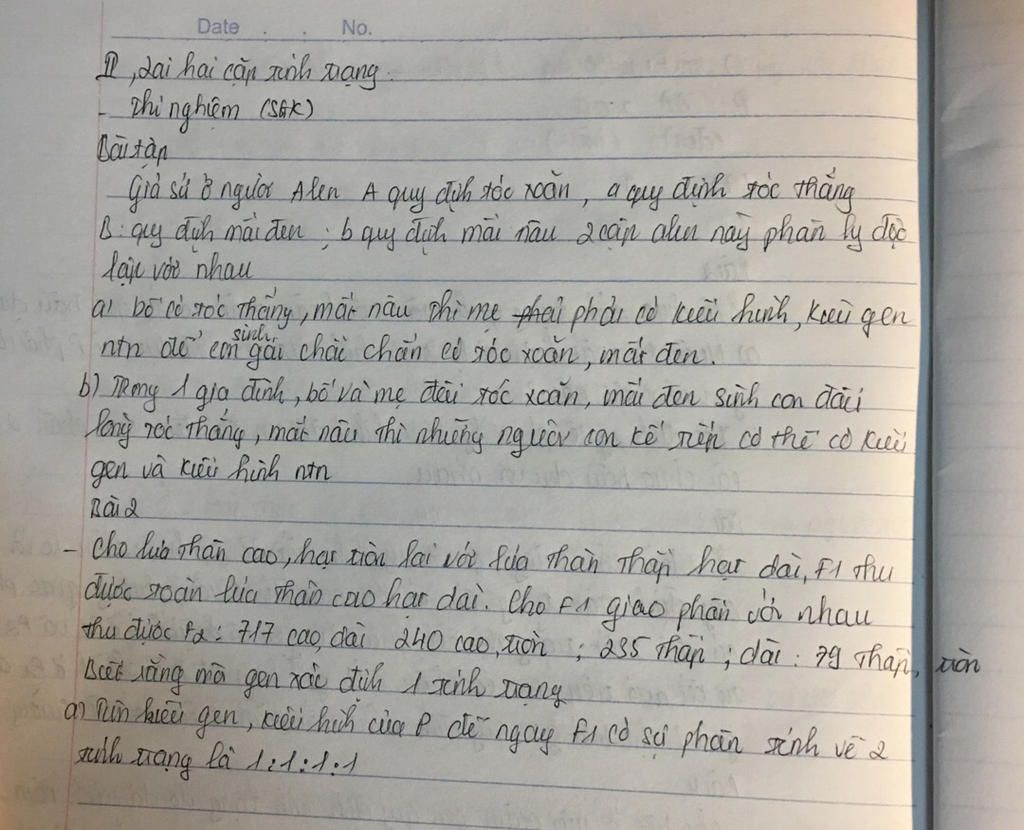 Date . . No.
II, Lai hai cặp tính trạng.
- Thí nghiệm (SGK)
Bài tập
Giả sử ở người Alen A quy định tóc xoăn, a quy định tóc thẳng
B: quy định mắt đen; b quy định mắt nâu 2 cặp alen này phân ly độc
lập với nhau
a) bố có tóc thẳng, mắt nâu thì mẹ phải phải có kiểu hình, kiểu gen
ntn để sinh con gái chắc chắn có tóc xoăn, mắt đen.
b) Trong 1 gia đình, bố và mẹ đều tóc xoăn, mắt đen sinh con đầu
lòng tóc thẳng, mắt nâu thì những người con kế tiếp có thể có kiểu
gen và kiểu hình ntn
Bài 2
- Cho lúa thân cao, hạt tròn lai với lúa thân thấp hạt dài, F1 thu
được toàn lúa thân cao hạt dài. Cho F1 giao phấn với nhau
thu được F2: 717 cao, dài 240 cao, tròn; 235 thấp; dài: 79 thấp, tròn
Biết rằng mỗi gen xác định 1 tính trạng
a) Tìm kiểu gen, kiểu hình của P để ngay F1 có sự phân tính về 2
tính trạng là 1:1:1:1